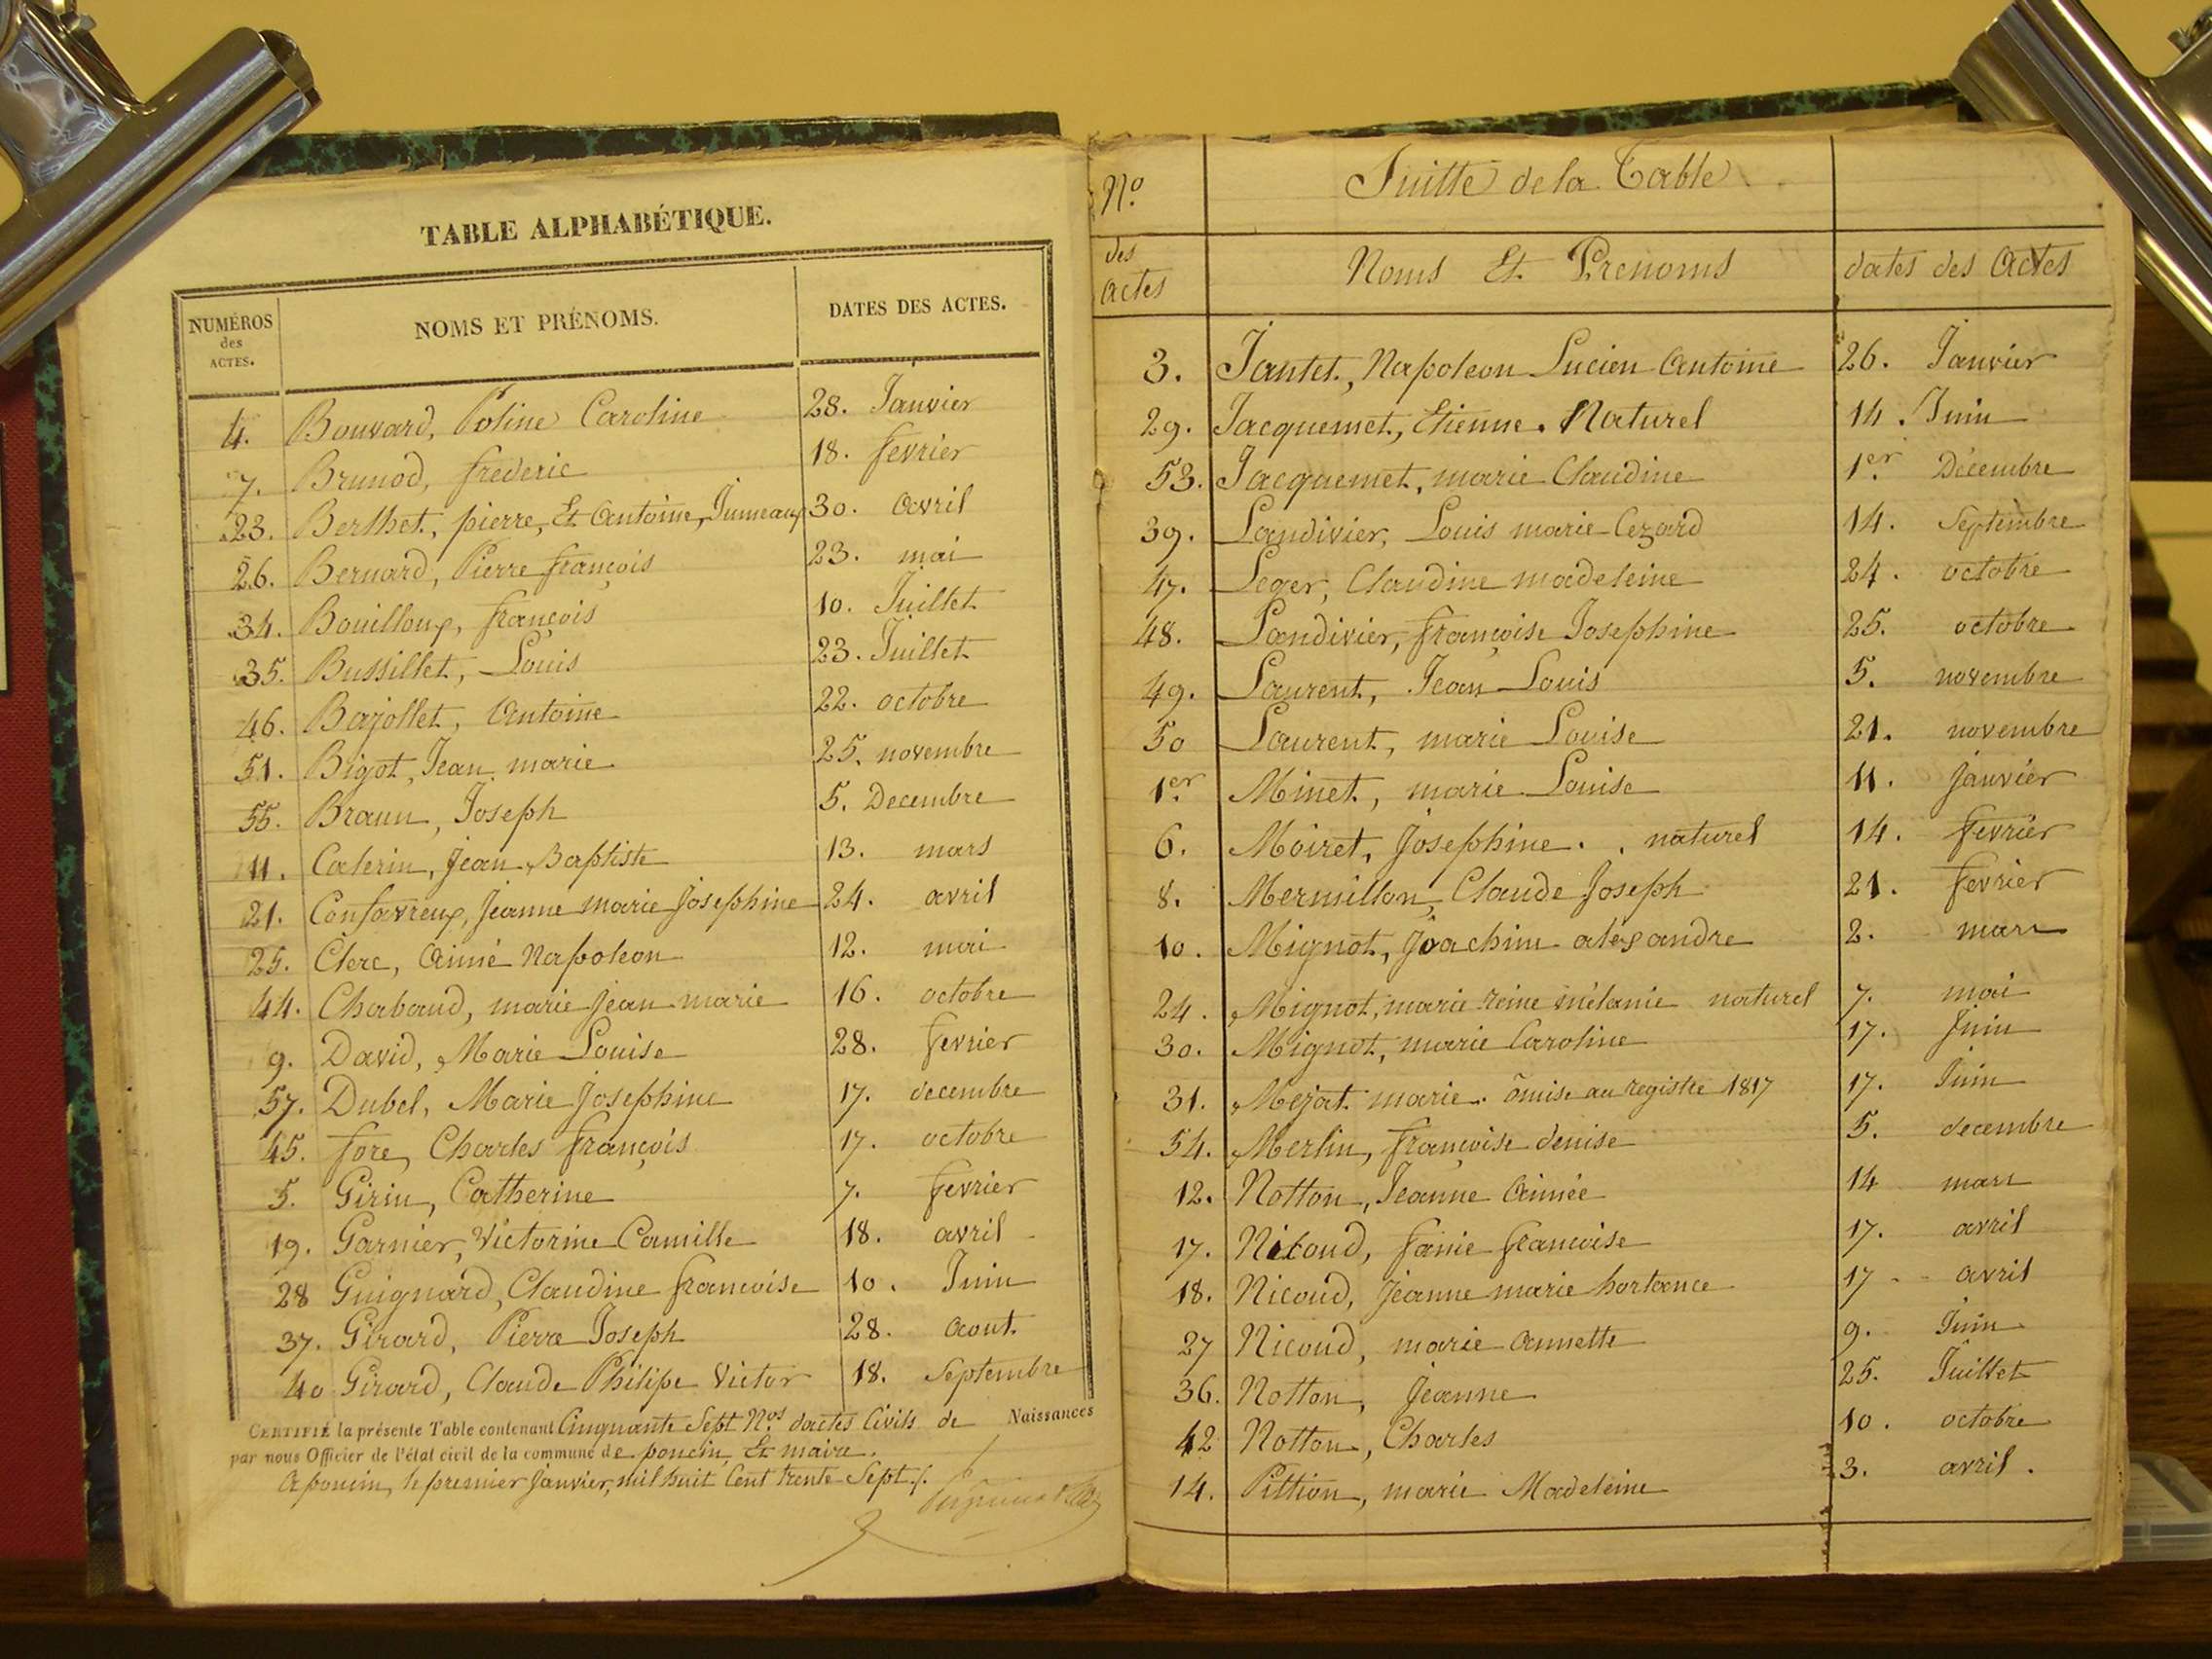 TABLE ALPHABÉTIQUE.
NUMÉROS des ACTES. NOMS ET PRÉNOMS. DATES DES ACTES.
4. Bouvard, Poline Caroline 28. Janvier
7. Brunod, frederic 18. fevrier
23. Berthet, pierre, Et Antoine, Jumeaux 30. avril
26. Bernard, Pierre françois 23. mai
34. Bouilloux, françois 10. Juillet
35. Bussillet, Louis 23. Juillet
46. Bajollet, Antoine 22. octobre
51. Bigot, Jean marie 25. novembre
55. Braun, Joseph 5. Decembre
11. Caterin, Jean Baptiste 13. mars
21. Confavreux, Jeanne marie Josephine 24. avril
25. Clerc, Aimé Napoleon 12. mai
44. Chabaud, marie Jean marie 16. octobre
9. David, Marie Louise 28. fevrier
57. Dubel, Marie Josephine 17. decembre
45. fore, Charles françois 17. octobre
5. Girin, Catherine 7. fevrier
19. Garnier, Victorine Camille 18. avril
28 Guignard, Claudine francoise 10. Juin
37. Girard, Pierre Joseph 28. Aout
40 Girard, Claude Philipe Victor 18. Septembre
CERTIFIÉ la présente Table contenant Cinquante Sept Nos dactes Civils de Naissances
par nous Officier de l'état civil de la commune de poncin, Et maire.
A poncin, le premier janvier, mil huit Cent trente Sept./.
No. Suitte de la Table
des actes Noms Et Prenoms dates des Actes
3. Jantet, Napoleon Lucien Antoine 26. Janvier
29. Jacquemet, Etienne. Naturel 14. Juin
53. Jacquemet, marie Claudine 1er. Décembre
39. Landivier, Louis marie Cezard 14. Septembre
47. Leger, Claudine madeleine 24. octobre
48. Landivier, françoise Josephine 25. octobre
49. Laurent, Jean Louis 5. novembre
50 Laurent, marie Louise 21. novembre
1er. Minet, marie Louise 11. janvier
6. Moiret, Josephine. . naturel 14. fevrier
8. Mermillon, Claude Joseph 21. fevrier
10. Mignot, Joachim alexandre 2. mars
24. Mignot, marie reine mélanie naturel 7. mai
30. Mignot, marie Caroline 17. Juin
31. Mejat marie. omise au registre 1817 17. Juin
54. Merlin, françoise denise 5. decembre
12. Notton, Jeanne Aimée 14 mars
17. Nicoud, fanie francoise 17. avril
18. Nicoud, Jeanne marie hortance 17 avril
27 Nicoud, marie Annette 9. Juin
36. Notton, Jeanne 25. Juillet
42 Notton, Charles 10. octobre
14. Pittion, marie Madeleine 3. avril.